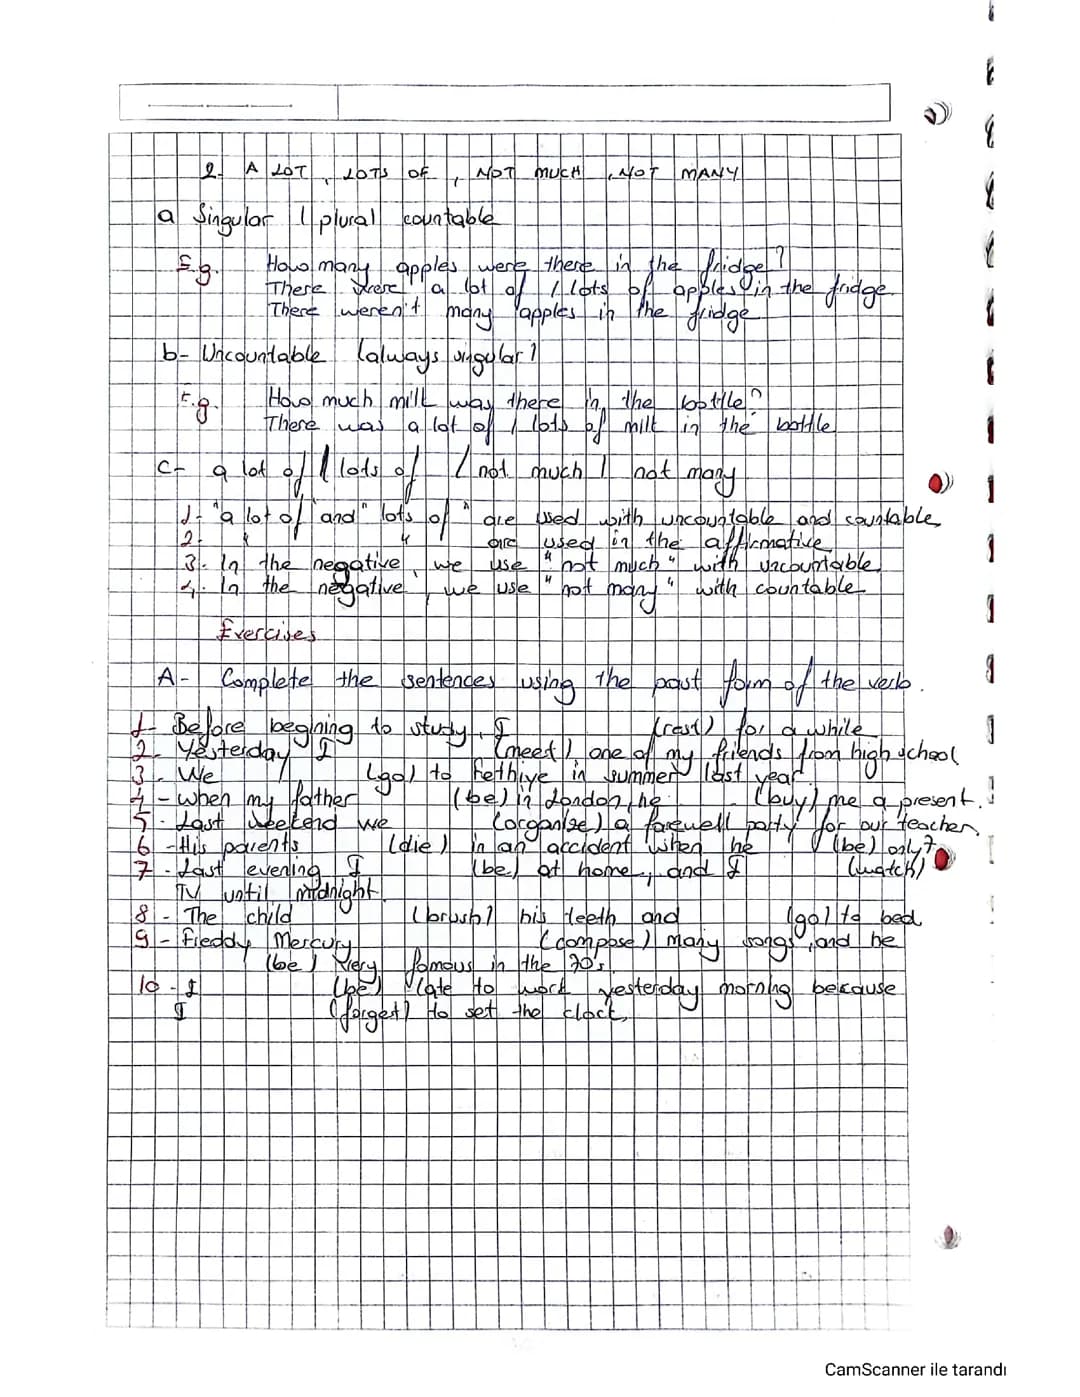 2. A LOT, LOTS OF, NOT MUCH, NOT MANY
a Singular / plural countable
E.g. How many apples were there in the fridge?
There were a lot of / lots of apples in the fridge
There weren't many apples in the fridge
b- Uncountable (always singular)
E.g. How much milk was there in the bottle?
There was a lot of / lots of milk in the bottle
c- a lot of / lots of / not much / not many
1- "a lot of" and "lots of" are used with uncountable and countable
2- " " are used in the affirmative
3- In the negative, we use "not much" with uncountable
4- In the negative, we use "not many" with countable
Exercises
A- Complete the sentences using the past form of the verb.
1- Before begining to study, I (rest) for a while
2- Yesterday I (meet) one of my friends from high school
3- We (go) to Fethiye in summer last year
4- When my father (be) in London, he (buy) me a present.
5- Last weekend we (organize) a farewell party for our teacher.
6- His parents (die) in an accident when he (be) only 7
7- Last evening I (be) at home, and I (watch)
TV until midnight
8- The child (brush) his teeth and (go) to bed
9- Freddy Mercury (compose) many songs, and he
(be) very famous in the 70's
10- I (be) late to work yesterday morning because
I (forget) to set the clock.
CamScanner ile tarandı